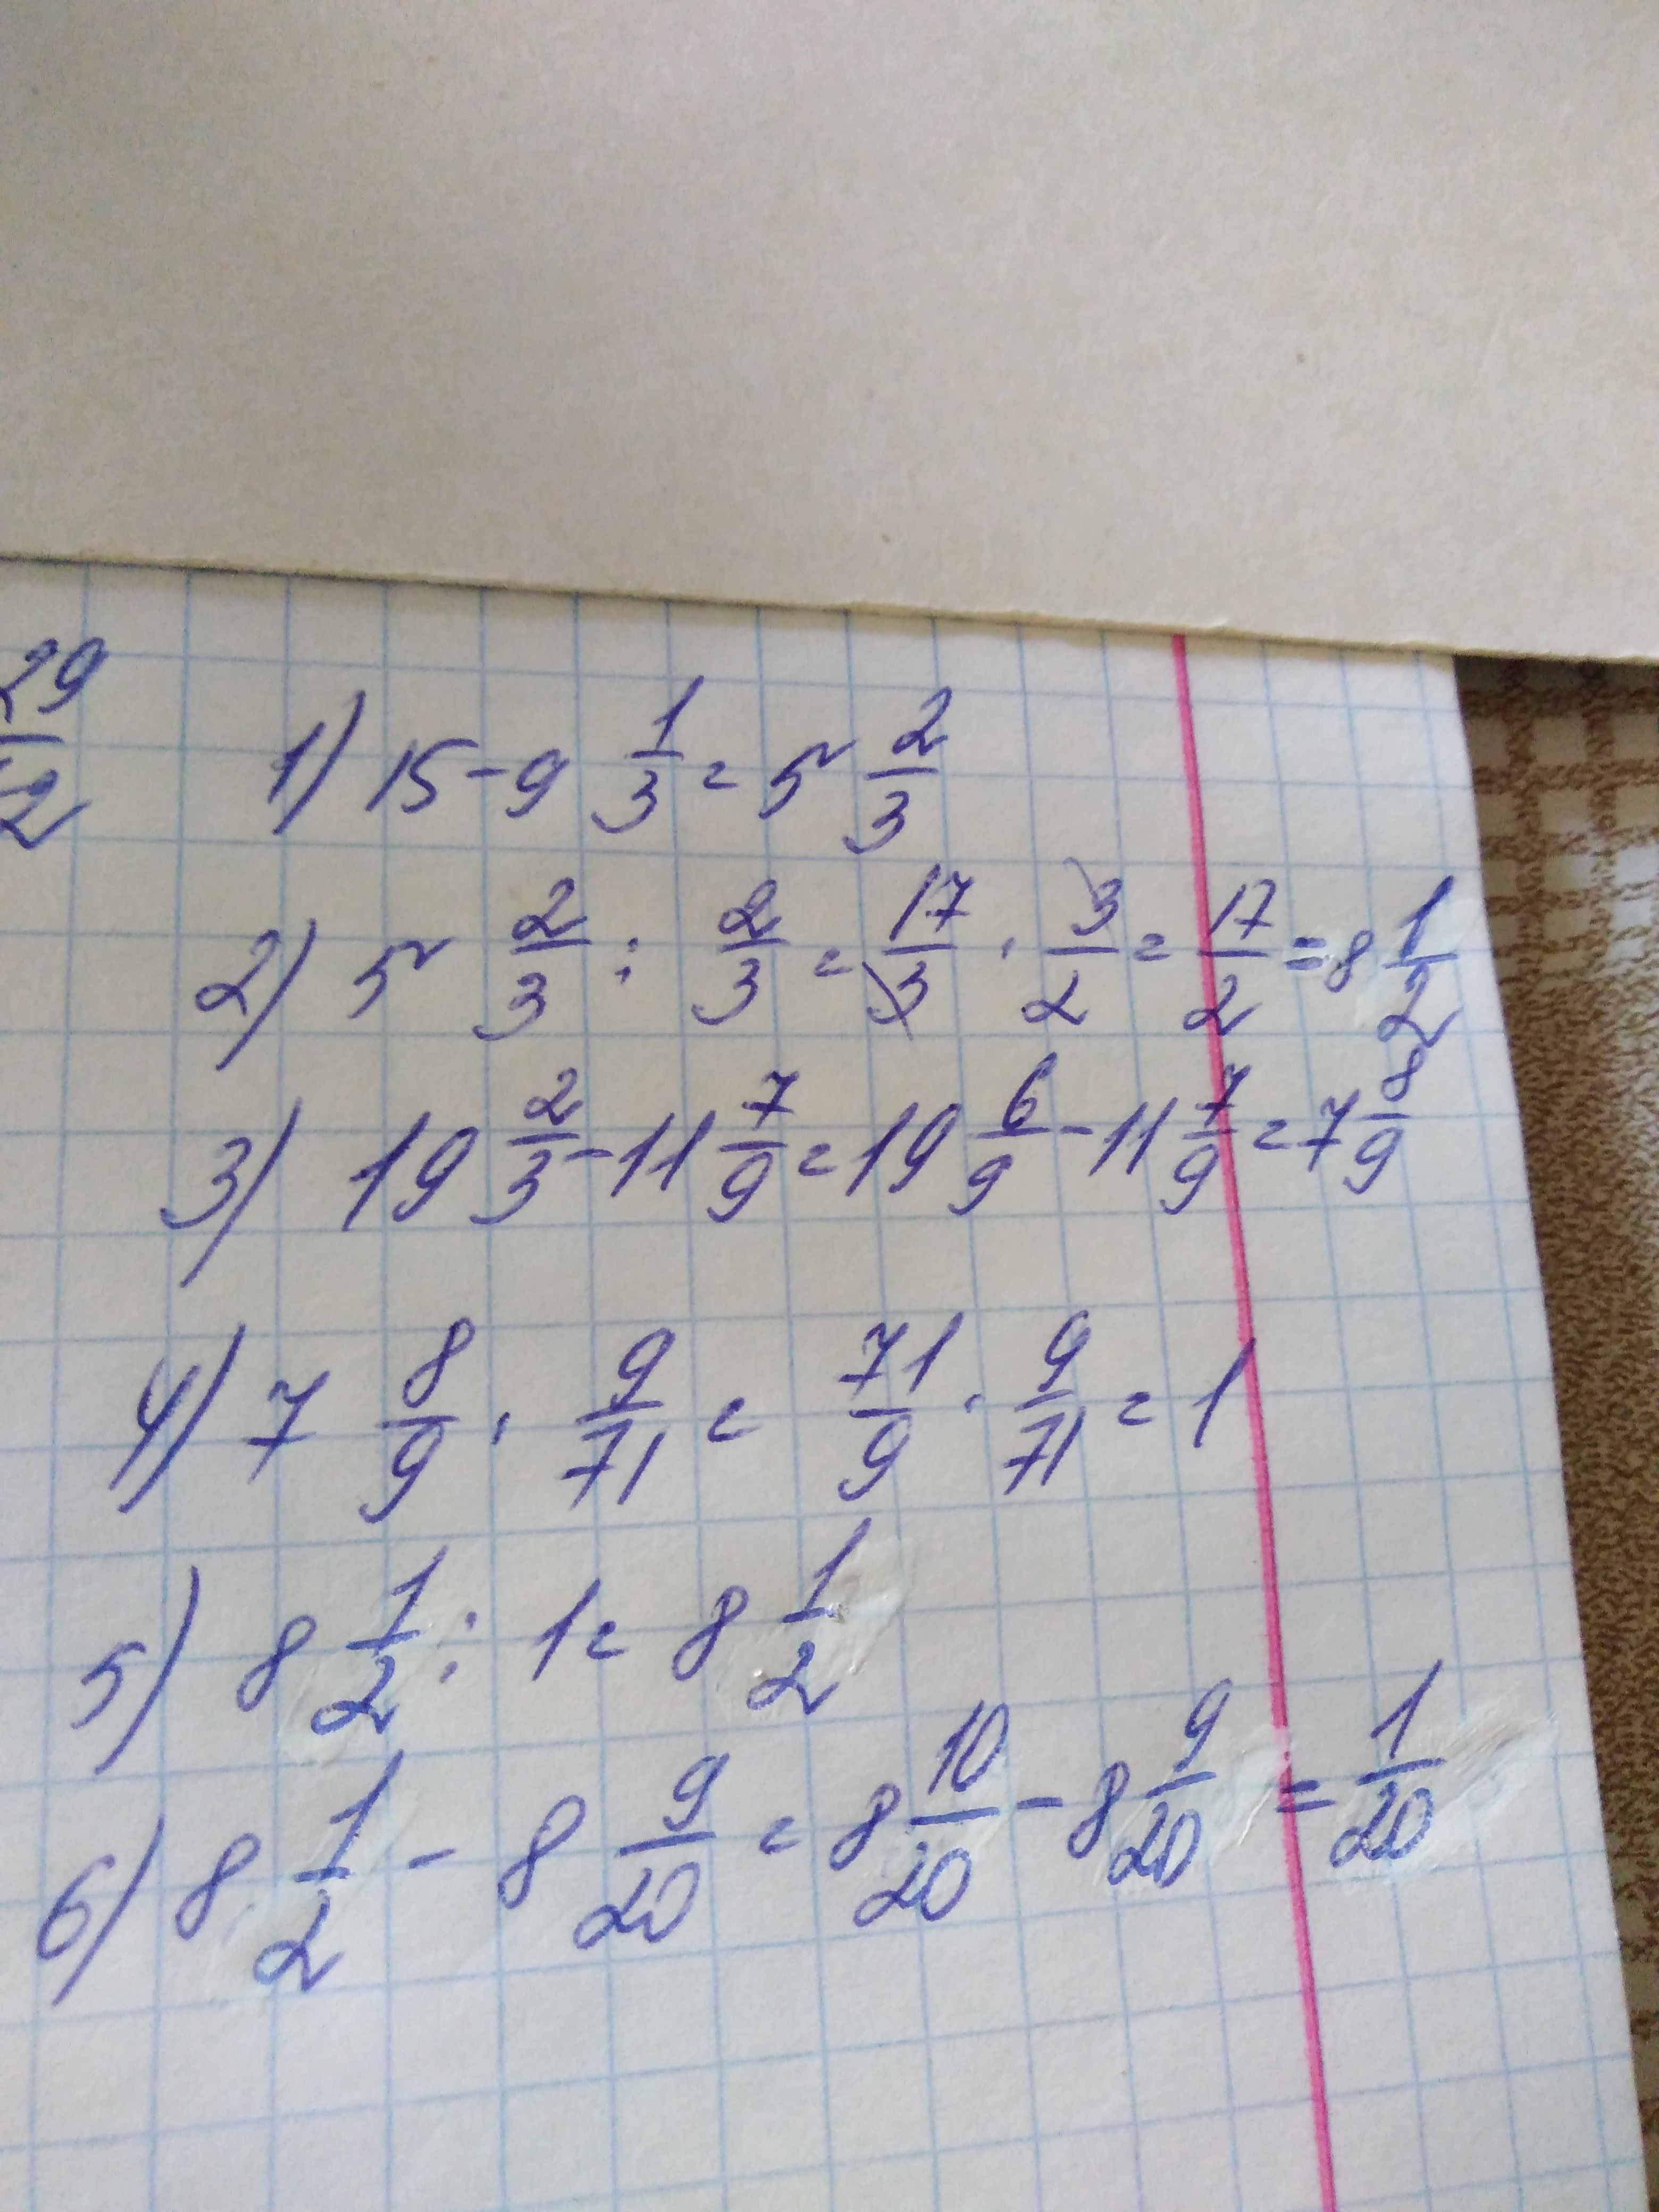 29/2
1) 15 - 9 1/3 = 5 2/3
2) 5 2/3 : 2/3 = 17/3 · 3/2 = 17/2 = 8 1/2
3) 19 2/3 - 11 7/9 = 19 6/9 - 11 7/9 = 7 8/9
4) 7 8/9 · 9/71 = 71/9 · 9/71 = 1
5) 8 1/2 : 1 = 8 1/2
6) 8 1/2 - 8 9/20 = 8 10/20 - 8 9/20 = 1/20